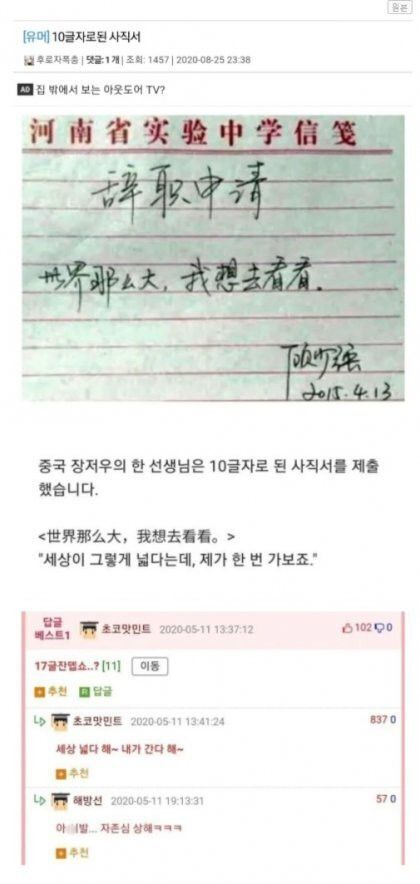 원본
[유머] 10글자로된 사직서
후로자폭충 | 댓글: 1 개 | 조회: 1457 | 2020-08-25 23:38
AD 집 밖에서 보는 아웃도어 TV?
河南省实验中学信笺
辞职申请
世界那么大，我想去看看。
顾少强
2015.4.13
중국 장저우의 한 선생님은 10글자로 된 사직서를 제출
했습니다.
<世界那么大，我想去看看。>
"세상이 그렇게 넓다는데, 제가 한 번 가보죠."
답글
베스트1
초코맛민트 2020-05-11 13:37:12
102 0
17글잔뎁쇼..? [11] 이동
추천 R 답글
초코맛민트 2020-05-11 13:41:24
837 0
세상 넓다 해~ 내가 간다 해~
추천
해방선 2020-05-11 19:13:31
57 0
아 발... 자존심 상해ㅋㅋㅋ
추천